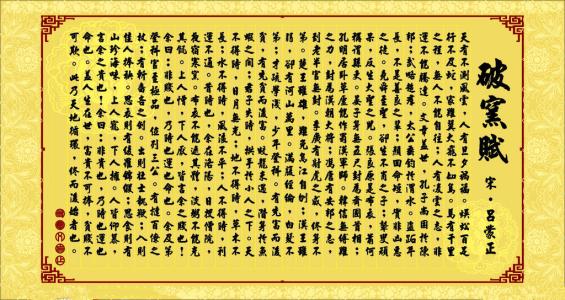 破窰賦
宋·呂蒙正
天有不測風雲,人有旦夕禍福。蜈蚣百足
行不及蛇,家雞翼大飛不如鳥。馬有千里
之程,無人不能自往;人有凌雲之志,非
運不能騰達。文章蓋世,孔子尚困於陳
邦;武略超群,太公垂釣於渭水。盜跖年
長,不是善良之輩;顏回命短,實非凶惡
之徒。堯舜至聖,卻生不肖之子;瞽叟頑
呆,反生大聖之兒。張良原是布衣,蕭何
稱謂縣吏。晏子身無五尺,封為齊國首相;
孔明居臥草廬,能作蜀漢軍師。韓信無縛雞
之力,封為漢朝大將。馮唐有安邦之志,
到老半官無封。李廣有射虎之威,終身不
第。楚王雖雄,難免烏江自刎;漢王雖
弱,卻有河山萬里。滿腹經綸,白髮不
第;才疏學淺,少年登科。有先富而後
貧,有先貧而後富。蛟龍未遇,潛身於魚
蝦之間;君子失時,拱手於小人之下。天
不得時,日月無光;地不得時,草木不
長;水不得時,風浪不平;人不得時,利
運不通。昔時也,余在洛陽,日投僧院,
夜宿寒窰。布衣不能遮其體,淡粥不能充
其饑。上人憎,下人厭,皆言余之賤也!
余曰:非賤也,乃時也運也命也。余及第
登科,官至極品,位列三公。有撻百僚之
杖,有斬鄙吝之劍。出則壯士執鞭,入則
佳人捧袂。思衣則有綾羅錦緞;思食則有
山珍海味。上人寵,下人擁。人皆仰慕,
言余之貴也!余曰:非貴也,乃時也運也
命也。蓋人生在世,富貴不可捧,貧賤不
可欺。此乃天地循環,終而復始者也。